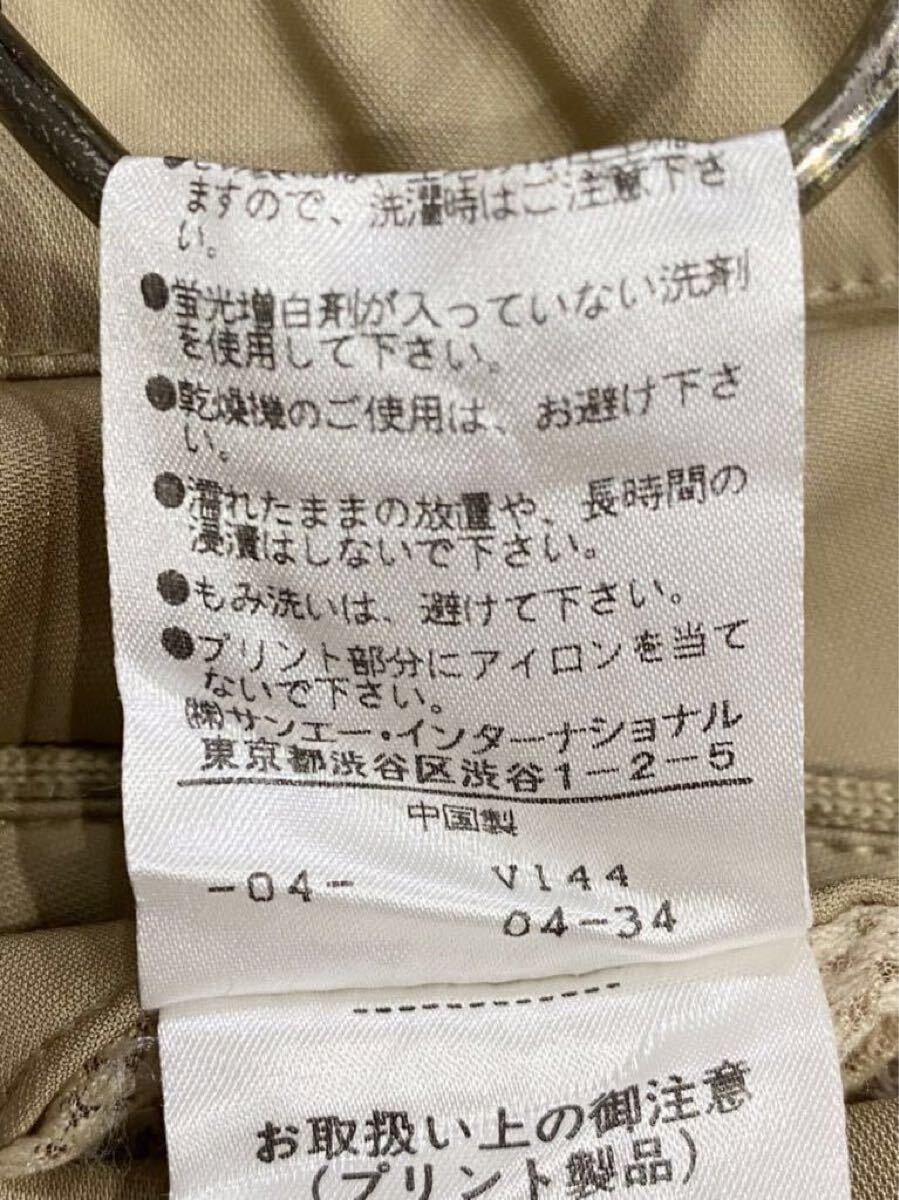 ますので、洗濯時はご注意下さ
い。
●蛍光増白剤が入っていない洗剤
を使用して下さい。
●乾燥機のご使用は、お避け下さ
い。
●濡れたままの放置や、長時間の
浸漬はしないで下さい。
●もみ洗いは、避けて下さい。
●プリント部分にアイロンを当て
ないで下さい。
㈱サンエー・インターナショナル
東京都渋谷区渋谷1-2-5
中国製
-04- V144
04-34
------------
お取扱い上の御注意
(プリント製品)